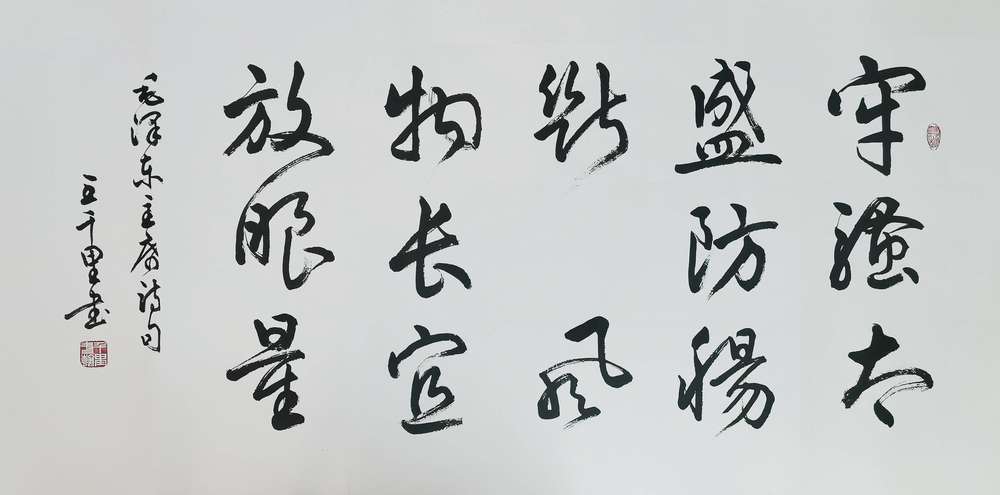 牢骚太
盛防腸
斷风
物长宜
放眼量
毛泽东主席诗句
王千里書